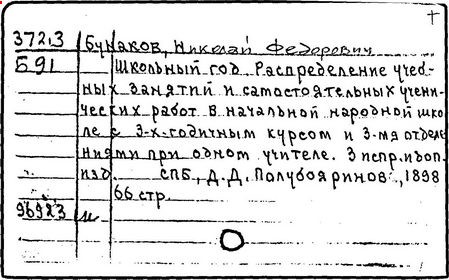 372.3 Бунаков, Николай Федорович
Б91 Школьный год. Распределение учеб-
ных занятий и самостоятельных учени-
ческих работ в начальной народной шко
ле с 3-х-годичным курсом и 3-мя отделе
ниями при одном учителе. 3 испр. и доп.
изд. СПБ, Д.Д. Полубояринов, 1898
66 стр.
96923 и